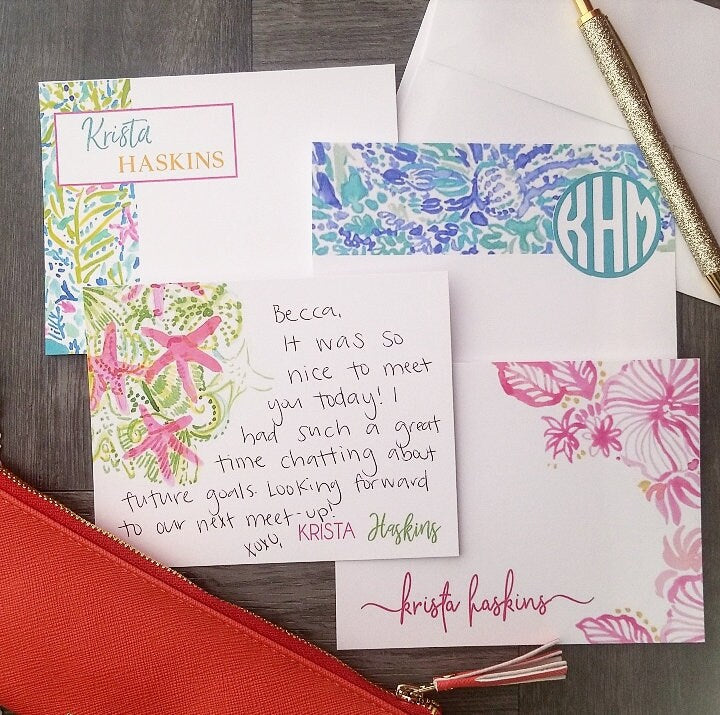 Krista
HASKINS
KHM
Becca,
It was so
nice to meet
you today! I
had such a great
time chatting about
future goals. Looking forward
to our next meet-up!
xoxo, KRISTA Haskins
krista haskins
Lilly